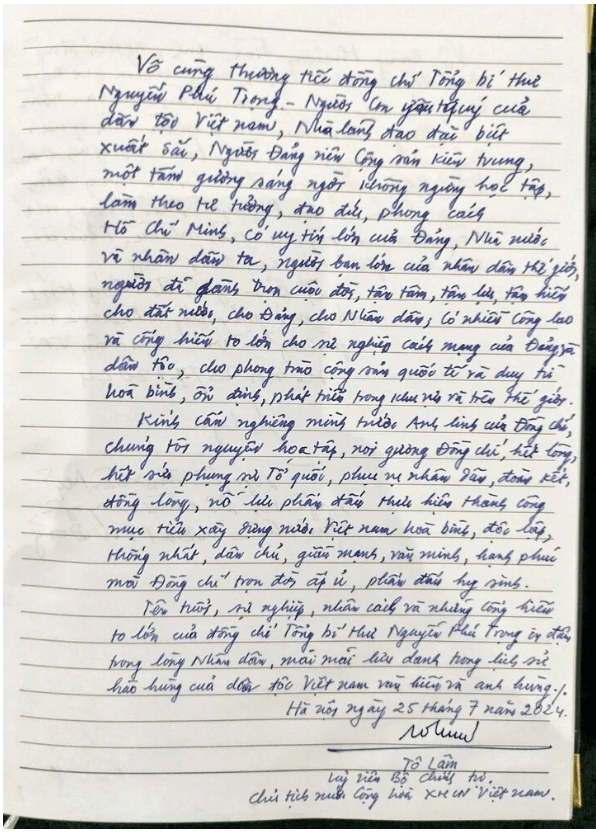 Vô cùng thương tiếc đồng chí Tổng bí thư
Nguyễn Phú Trọng - Người con yêu quý của
dân tộc Việt nam, Nhà lãnh đạo đặc biệt
xuất sắc, Người Đảng viên Cộng sản kiên trung,
một tấm gương sáng ngời không ngừng học tập,
làm theo tư tưởng, đạo đức, phong cách
Hồ Chí Minh, có uy tín lớn của Đảng, Nhà nước
và nhân dân ta, người bạn lớn của nhân dân thế giới,
người đã dành trọn cuộc đời, tận tâm, tận lực, tận hiến
cho đất nước, cho Đảng, cho Nhân dân; Có nhiều công lao
và cống hiến to lớn cho sự nghiệp cách mạng của Đảng và
dân tộc, cho phong trào cộng sản quốc tế và duy trì
hoà bình, ổn định, phát triển trong khu vực và trên thế giới.
Kính cẩn nghiêng mình trước Anh linh của Đồng chí,
chúng tôi nguyện học tập, noi gương Đồng chí, hết lòng,
hết sức phụng sự Tổ quốc, phục vụ nhân dân, đoàn kết,
đồng lòng, nỗ lực phấn đấu thực hiện thành công
mục tiêu xây dựng nước Việt nam hoà bình, độc lập,
thống nhất, dân chủ, giàu mạnh, văn minh, hạnh phúc
mà Đồng chí trọn đời ấp ủ, phấn đấu hy sinh.
Tên tuổi, sự nghiệp, nhân cách và những cống hiến
to lớn của đồng chí Tổng bí thư Nguyễn Phú Trọng in đậm
trong lòng Nhân dân, mãi mãi lưu danh trong lịch sử
hào hùng của dân tộc Việt nam văn hiến và anh hùng./.
Hà nội ngày 25 tháng 7 năm 2024.
Tô Lâm
Uỷ viên Bộ Chính trị.
Chủ tịch nước Cộng hoà XHCN Việt nam.